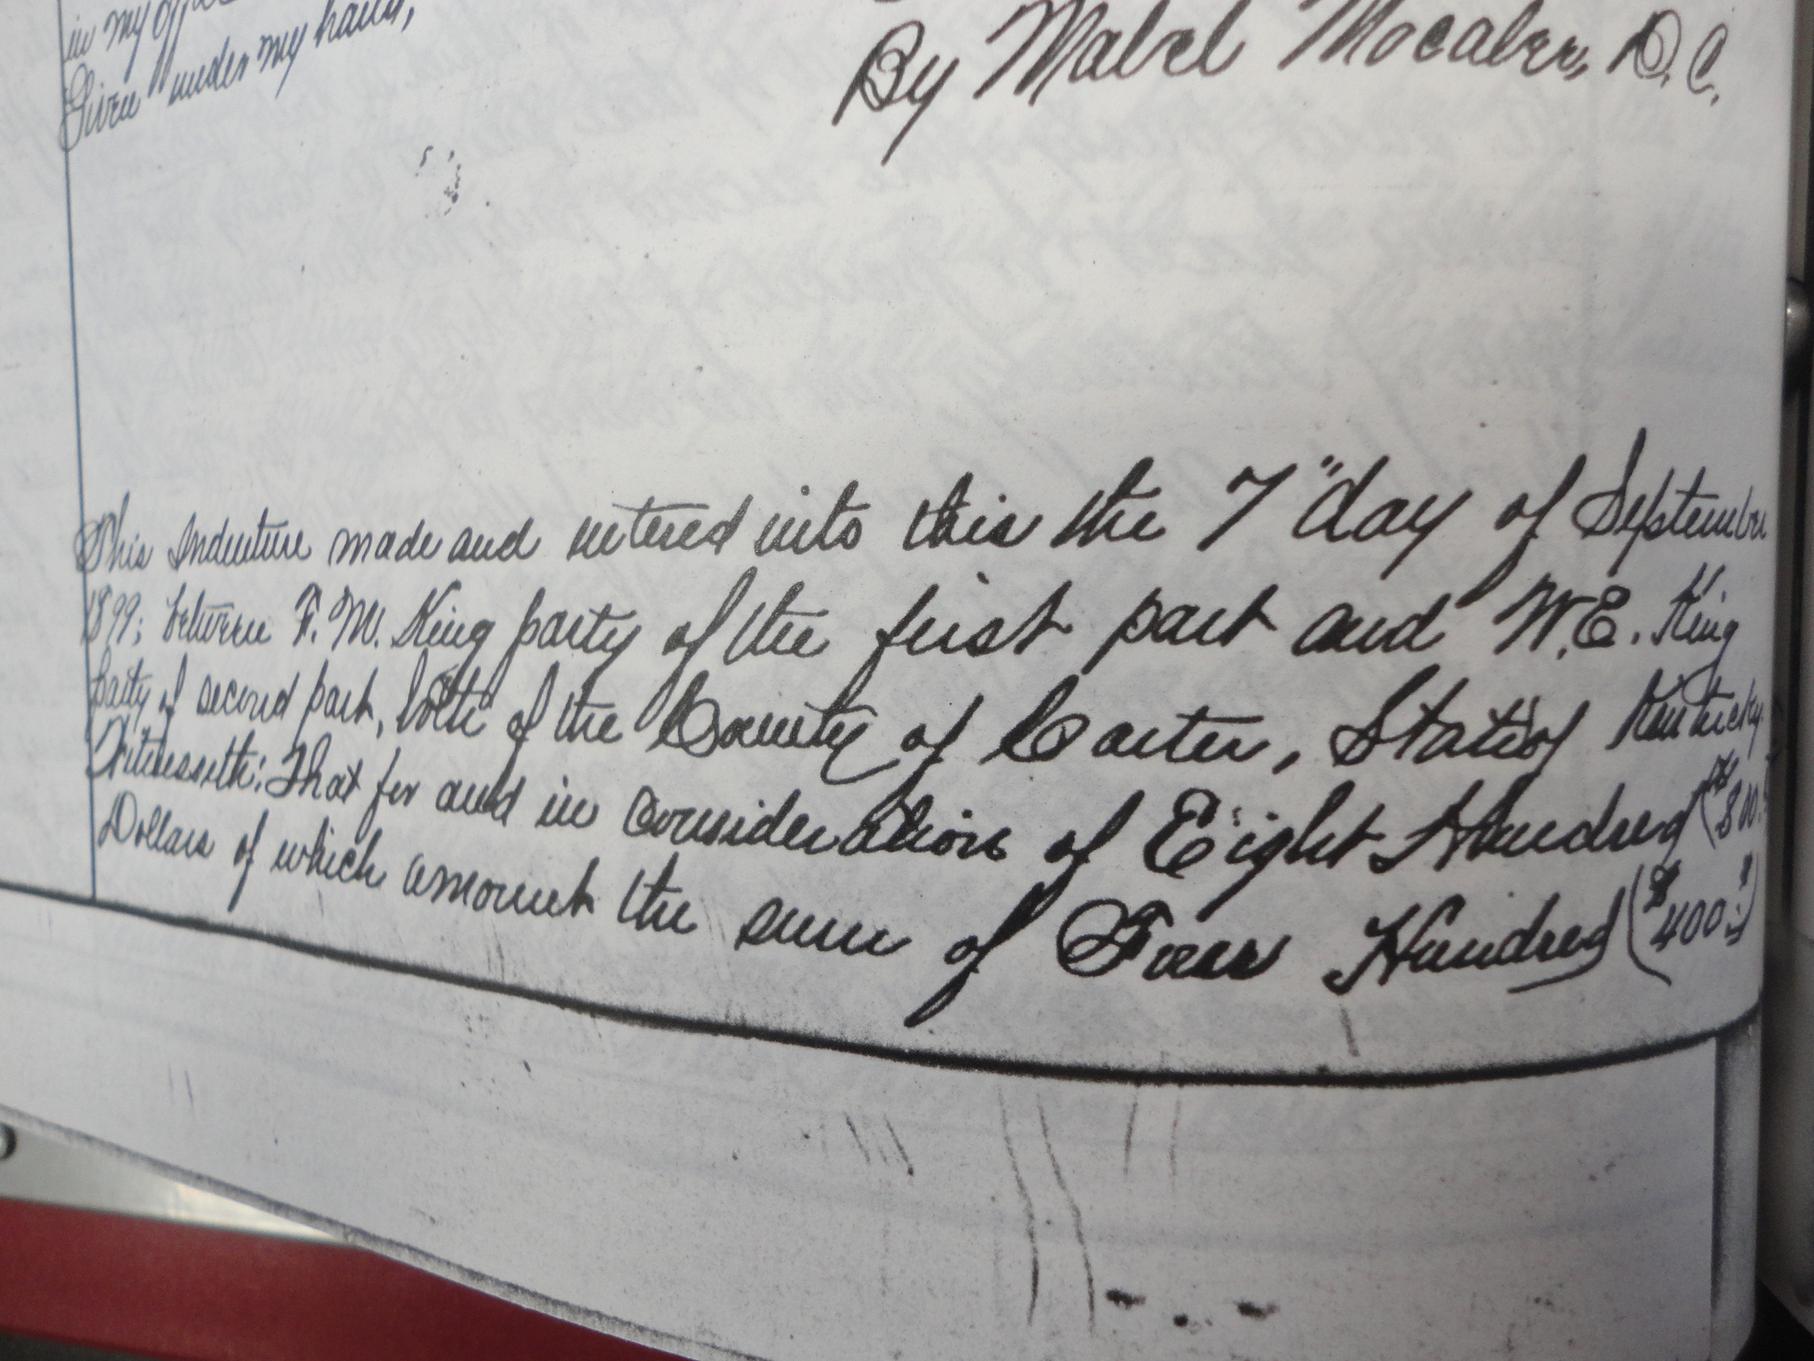 in my office
Given under my hand,
By Mabel Mocaber, D.C.
This Indenture made and entered into this the 7" day of September
1899; between F. M. King party of the first part and W. E. King
party of second part, both of the County of Carter, State of Kentucky.
Witnesseth: That for and in consideration of Eight Hundred ($800.
Dollars of which amount the sum of Four Hundred ($400.)